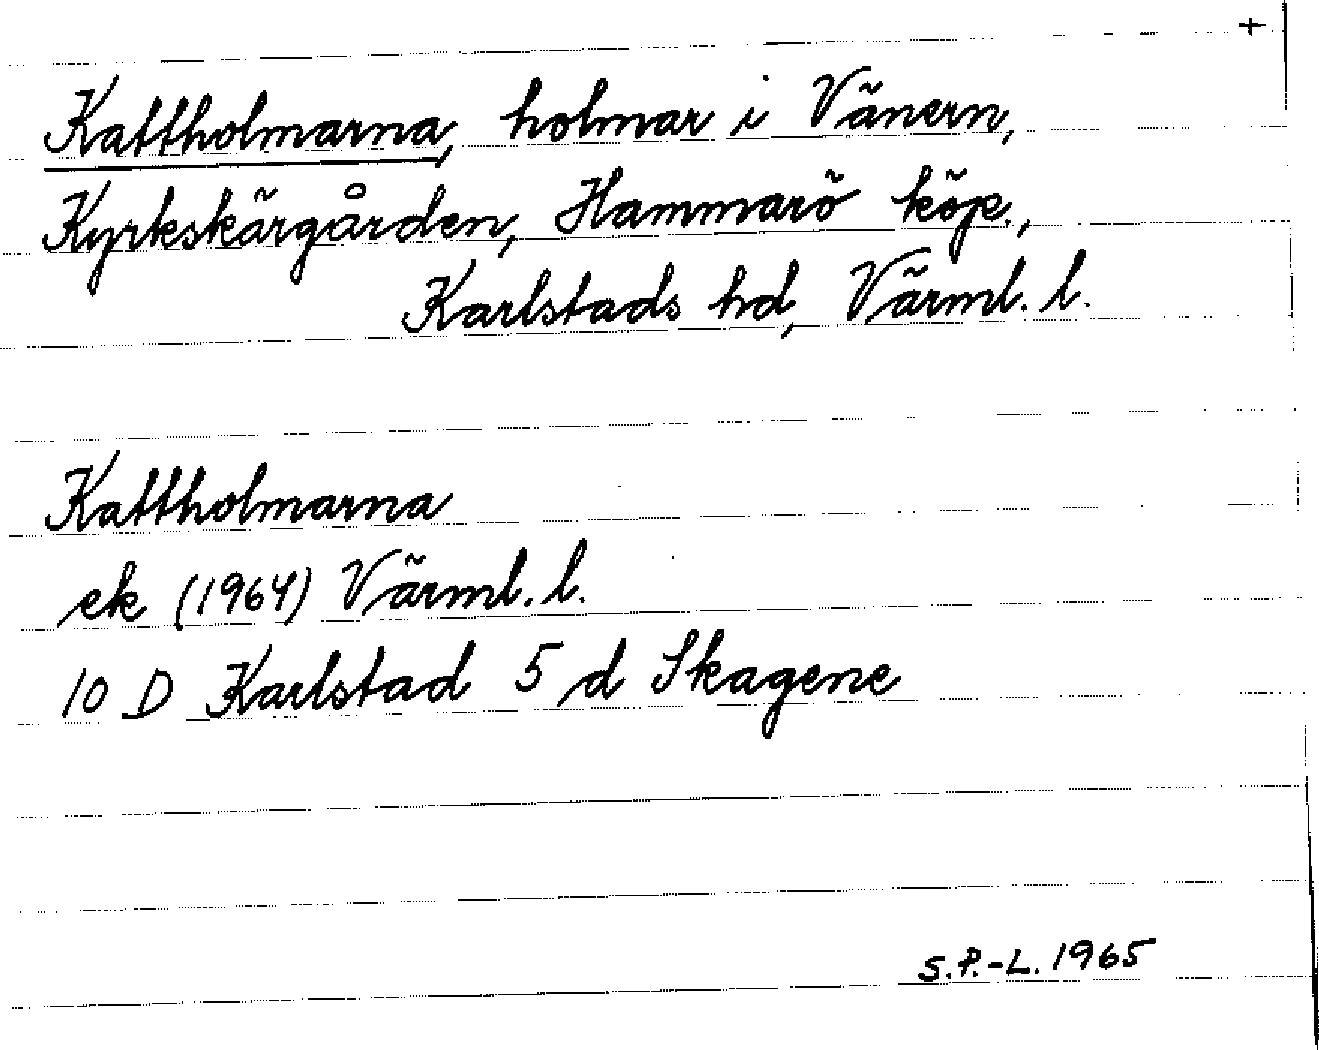 +
Kattholmarna, holmar i Vänern,
Kyrkskärgården, Hammarö köp.,
Karlstads hd, Värml. l.
Kattholmarna
ek (1964) Värml. l.
10 D Karlstad 5 d Skagene
S.P.-L. 1965